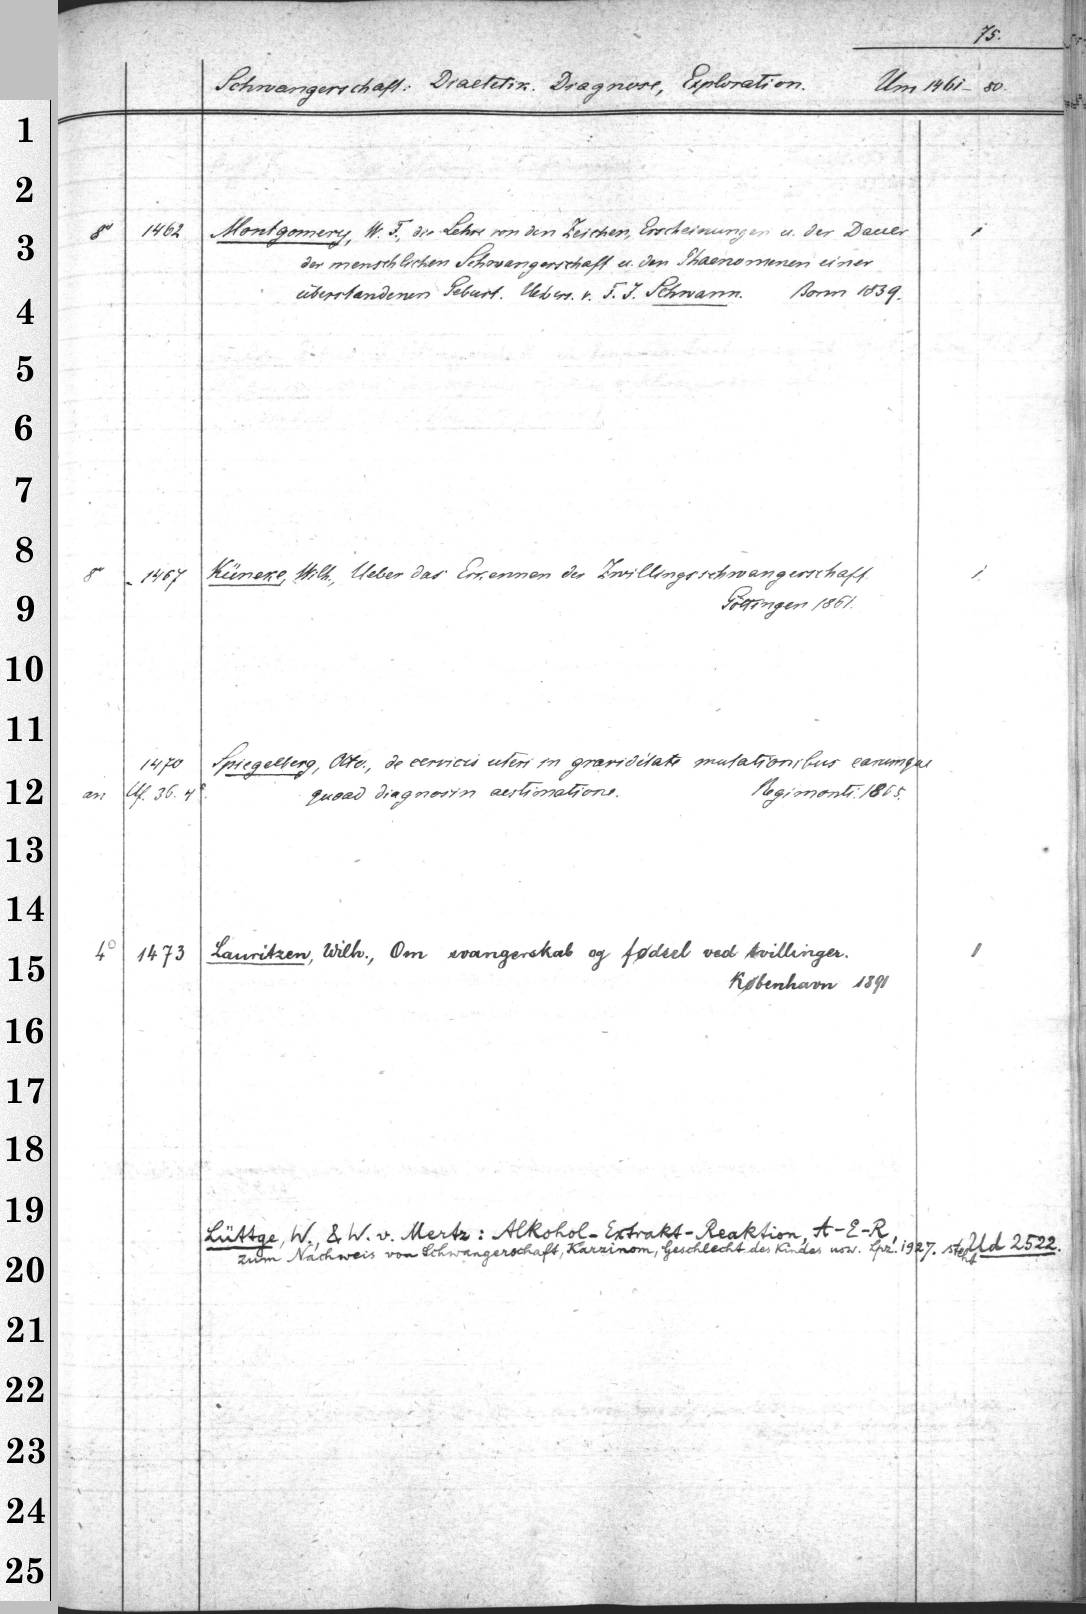 75.
Schwangerschaft: Diaetetik. Diagnose, Exploration. Um 1461-80.
1
2
8° 1462 Montgomery, W. F., die Lehre von den Zeichen, Erscheinungen u. der Dauer 1
3
der menschlichen Schwangerschaft u. den Phaenomenen einer
überstandenen Geburt. Uebers. v. F. J. Schwann. Bonn 1839.
4
5
6
7
8
8° 1467 Küneke, Wilh., Ueber das Erkennen der Zwillingsschwangerschaft 1.
9
Göttingen 1861.
10
11
1470 Spiegelberg, Otto., de cervicis uteri in graviditate mutationibus earumque
12
an Uf. 36. 4°. quoad diagnosin aestimatione. Regimonti. 1865.
13
14
4° 1473 Lauritzen, Wilh., Om svangerskab og fødsel ved tvillinger. 1
15
København 1891
16
17
18
19
Lüttge, W., & W. v. Mertz: Alkohol-Extrakt-Reaktion, A-E-R,
zum Nachweis von Schwangerschaft, Karzinom, Geschlecht des Kindes usw. Lpz. 1927. steht Ud 2522.
20
21
22
23
24
25